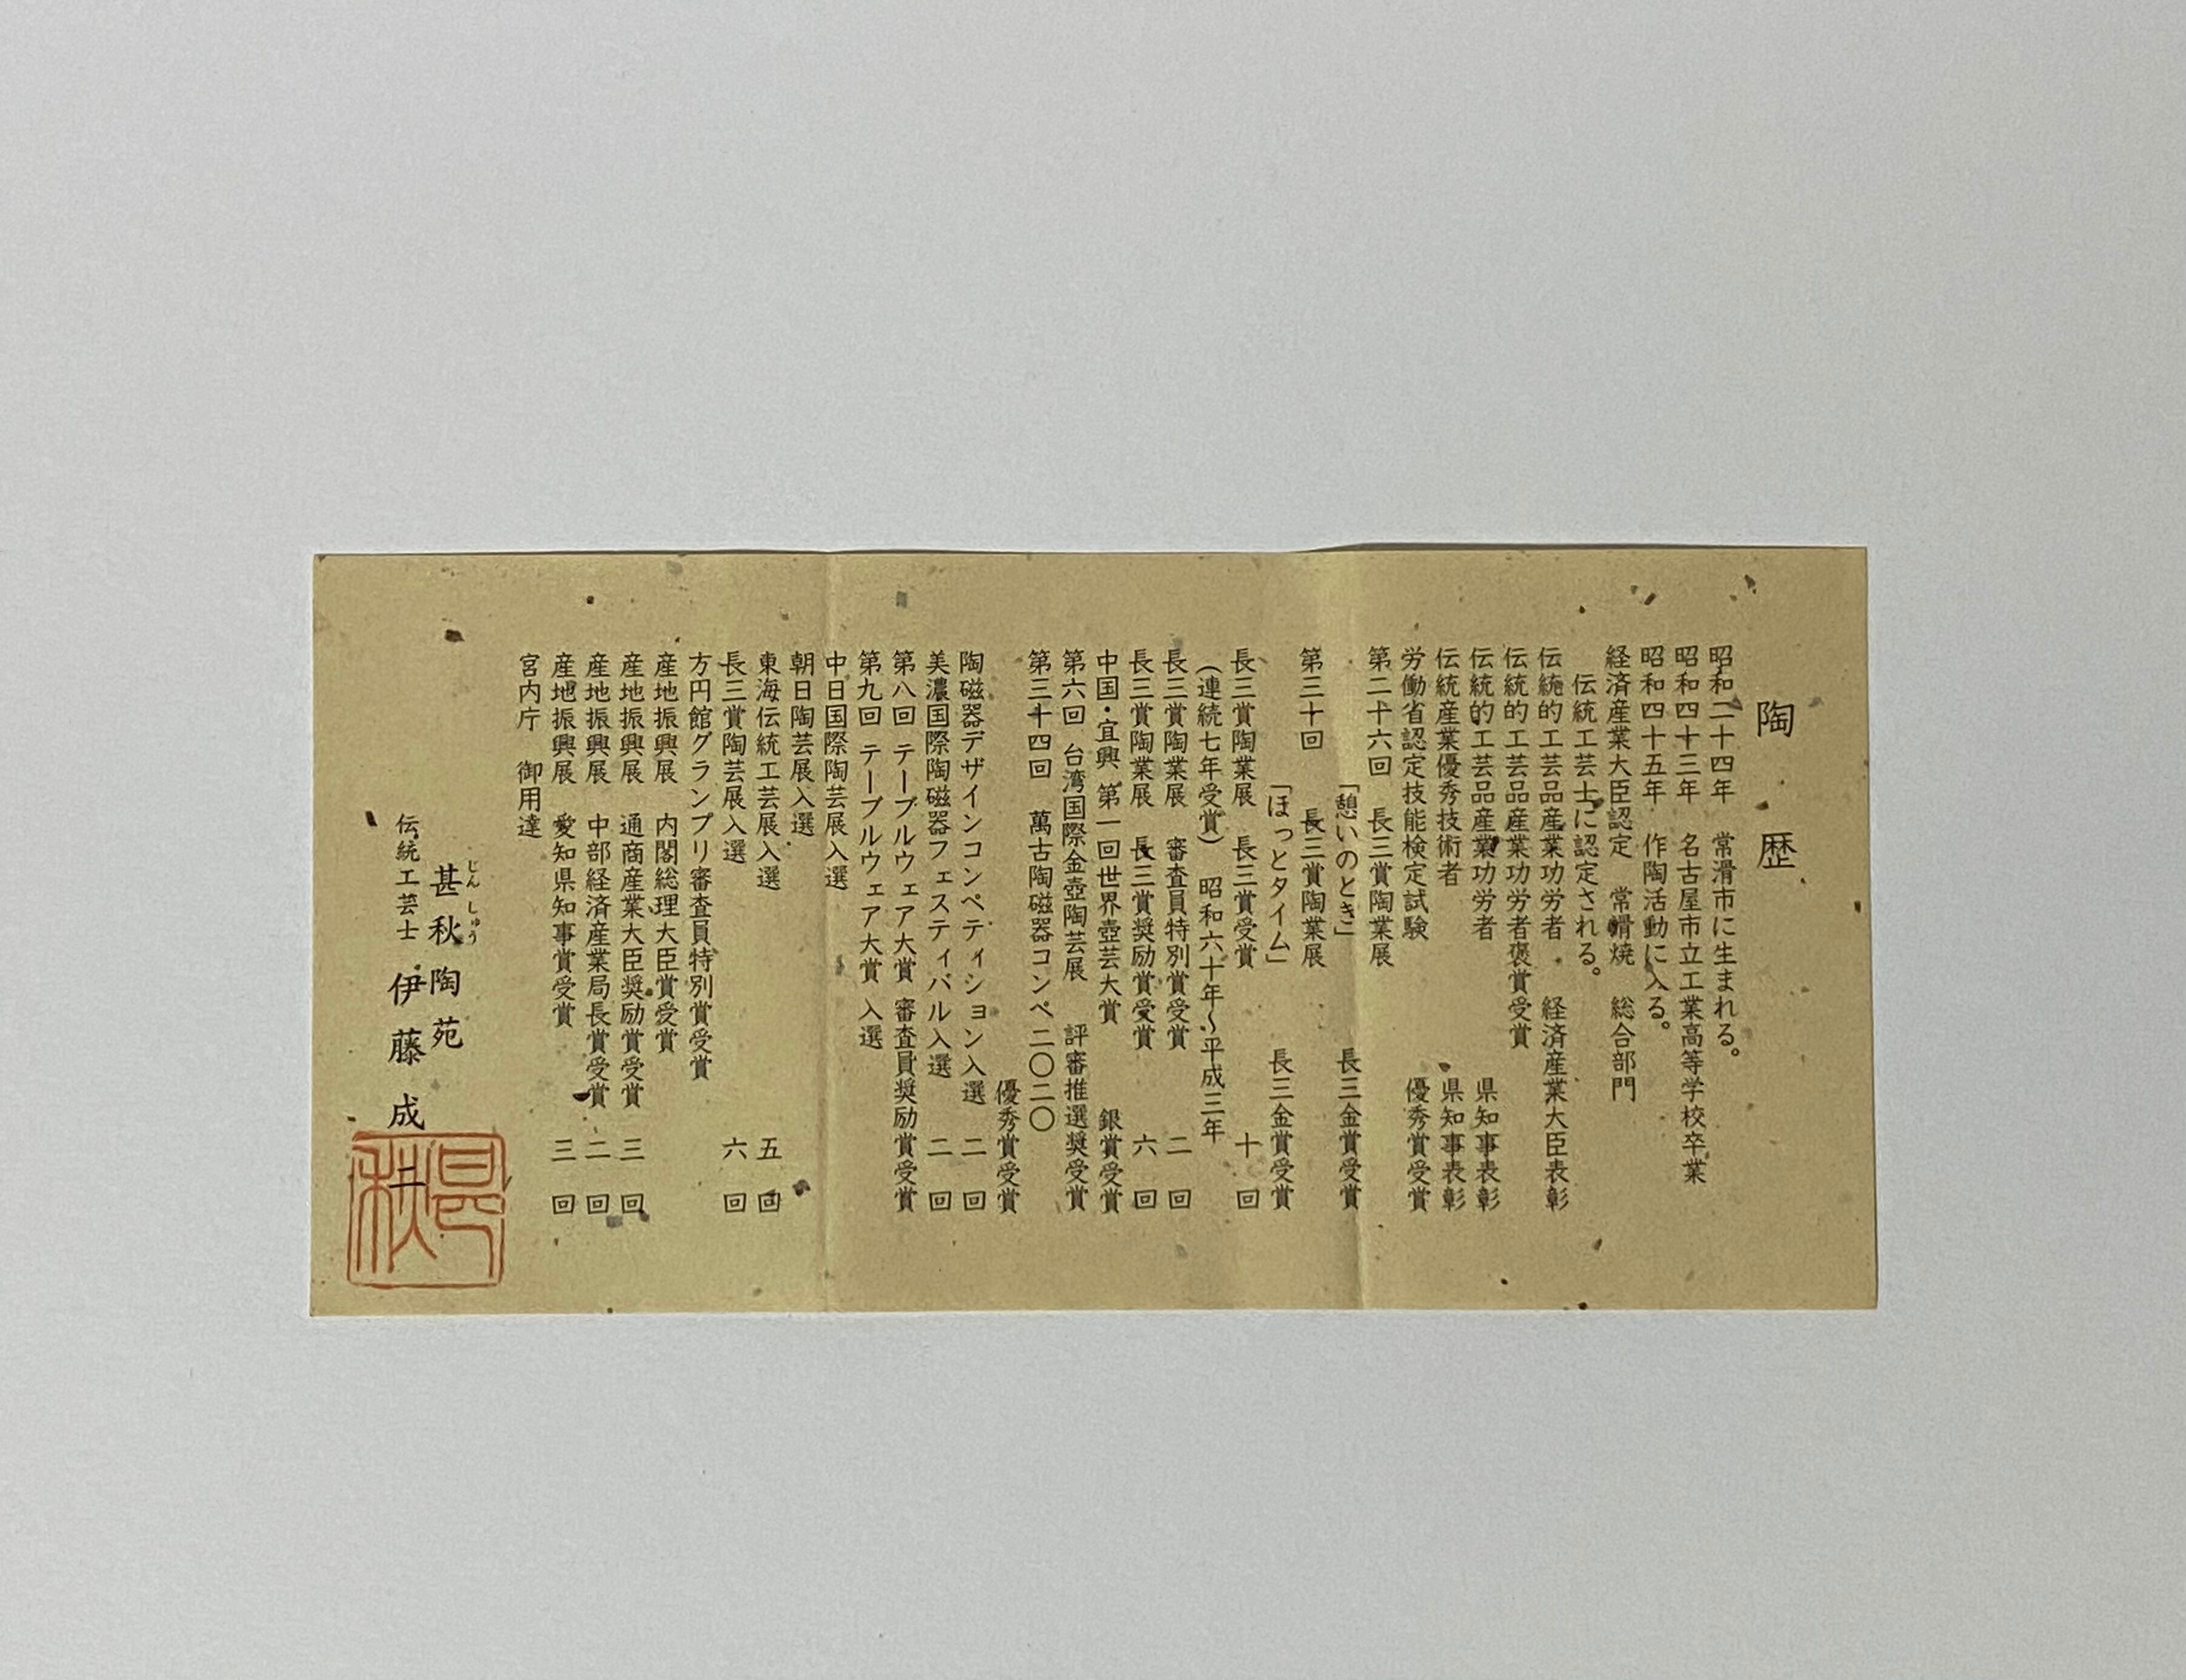 陶歴
昭和二十四年　常滑市に生まれる。
昭和四十三年　名古屋市立工業高等学校卒業
昭和四十五年　作陶活動に入る。
経済産業大臣認定　常滑焼　総合部門
伝統工芸士に認定される。
伝統的工芸品産業功労者　経済産業大臣表彰
伝統的工芸品産業功労者褒賞受賞
伝統的工芸品産業功労者　県知事表彰
伝統産業優秀技術者　県知事表彰
労働省認定技能検定試験　優秀賞受賞
第二十六回　長三賞陶業展
「憩いのとき」　長三金賞受賞
第三十回　長三賞陶業展
「ほっとタイム」　長三金賞受賞
長三賞陶業展　長三賞受賞　十回
（連続七年受賞）　昭和六十年～平成三年
長三賞陶業展　審査員特別賞受賞　二回
長三賞陶業展　長三賞奨励賞受賞　六回
中国・宜興　第一回世界壺芸大賞　銀賞受賞
第六回　台湾国際金壺陶芸展　評審推選奨受賞
第三十四回　萬古陶磁器コンペ二〇二〇
優秀賞受賞
陶磁器デザインコンペティション入選　二回
美濃国際陶磁器フェスティバル入選　二回
第八回 テーブルウェア大賞　審査員奨励賞受賞
第九回 テーブルウェア大賞　入選
中日国際陶芸展入選
朝日陶芸展入選
東海伝統工芸展入選　五回
長三賞陶芸展入選　六回
方円館グランプリ審査員特別賞受賞
産地振興展　内閣総理大臣賞受賞
産地振興展　通商産業大臣奨励賞受賞　三回
産地振興展　中部経済産業局長賞受賞　二回
産地振興展　愛知県知事賞受賞　三回
宮内庁　御用達
じんしゅう
甚秋陶苑
伝統工芸士　伊藤成二